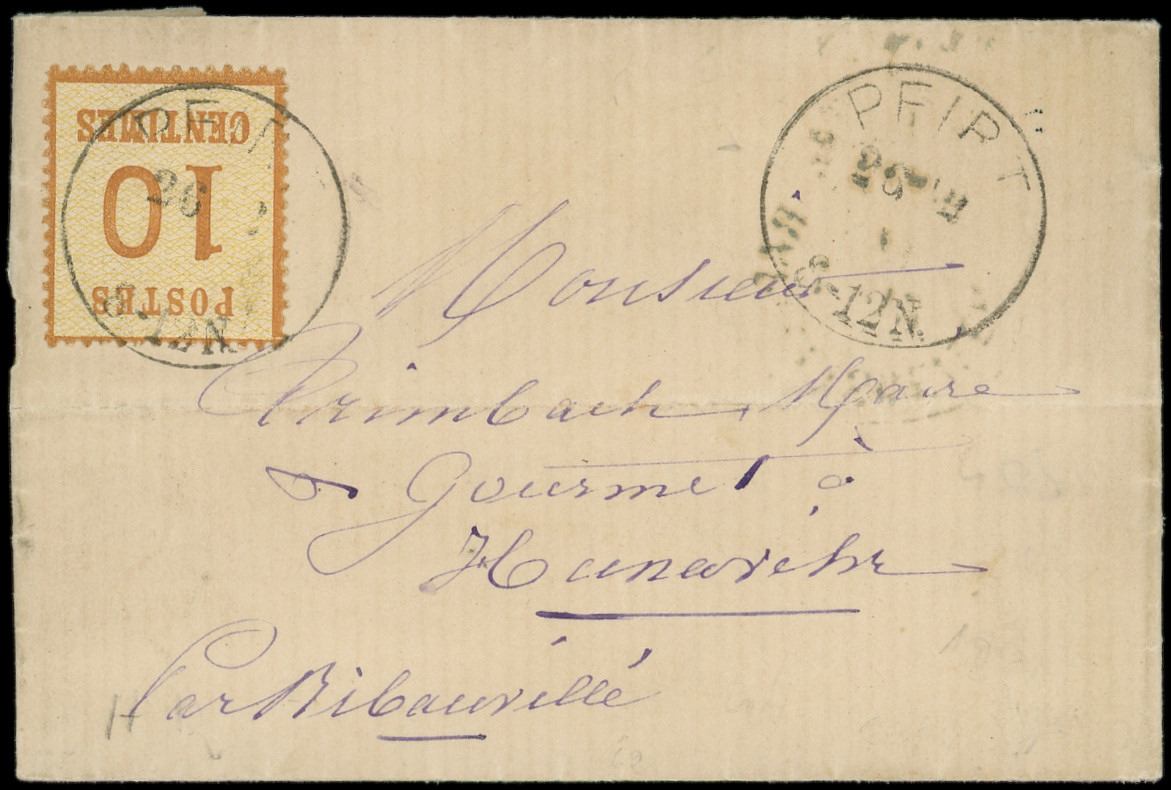 POSTES
10
CENTIMES
PFIRT
26
8-12N.
PFIRT
26
8-12N.
Monsieur
Krimbach, Maire
& Gourmet à
Hunawihr
Par Ribauvillé